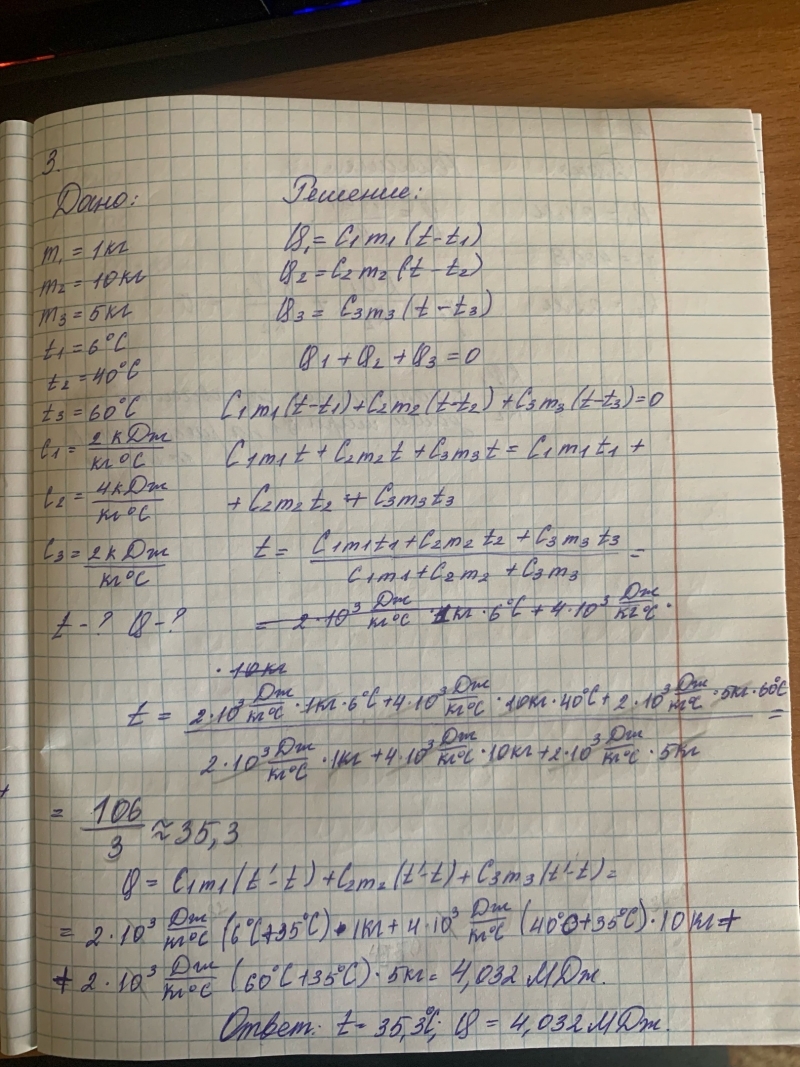 3.
Дано:
m₁ = 1кг
m₂ = 10кг
m₃ = 5кг
t₁ = 6°C
t₂ = 40°C
t₃ = 60°C
C₁ = 2кДж/кг°C
C₂ = 4кДж/кг°C
C₃ = 2кДж/кг°C
t - ? Q - ?
Решение:
Q₁ = C₁m₁(t-t₁)
Q₂ = C₂m₂(t-t₂)
Q₃ = C₃m₃(t-t₃)
Q₁ + Q₂ + Q₃ = 0
C₁m₁(t-t₁)+C₂m₂(t-t₂)+C₃m₃(t-t₃)=0
C₁m₁t + C₂m₂t + C₃m₃t = C₁m₁t₁ +
+ C₂m₂t₂ + C₃m₃t₃
t = (C₁m₁t₁+C₂m₂t₂+C₃m₃t₃)/(C₁m₁+C₂m₂+C₃m₃) =
= 2·10³ Дж/кг°C · 1кг · 6°C + 4·10³ Дж/кг°C ·
· 10кг
t = (2·10³ Дж/кг°C · 1кг · 6°C + 4·10³ Дж/кг°C · 10кг · 40°C + 2·10³ Дж/кг°C · 5кг · 60°C)/
(2·10³ Дж/кг°C · 1кг + 4·10³ Дж/кг°C · 10кг + 2·10³ Дж/кг°C · 5кг) =
= 106/3 ≈ 35,3
Q = C₁m₁(t'-t)+C₂m₂(t'-t)+C₃m₃(t'-t)=
= 2·10³ Дж/кг°C (6°C+35°C)·1кг + 4·10³ Дж/кг°C (40°C+35°C)·10кг+
+ 2·10³ Дж/кг°C (60°C+35°C)·5кг = 4,032 МДж.
Ответ: t = 35,3°C; Q = 4,032 МДж.